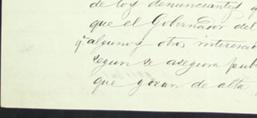 de los denunciantes y
que el Gobernador del
qe algunos otros
segun se asegura pub
que gozan de alta